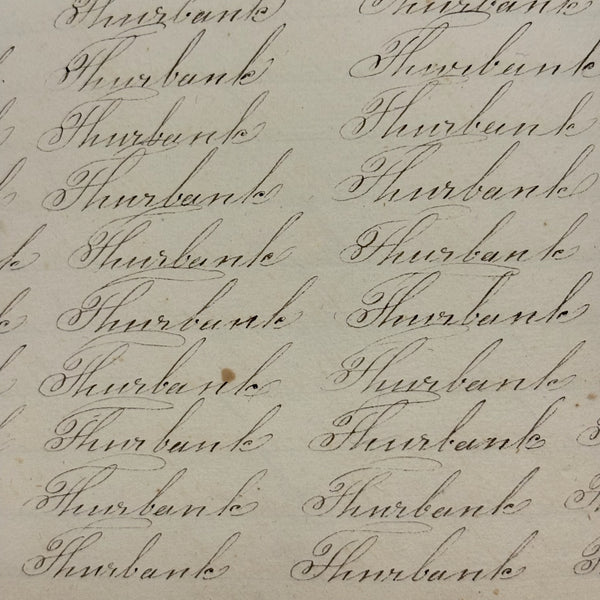 Thurbank Thurbank
Thurbank Thurbank
Thurbank Thurbank
Thurbank Thurbank
Thurbank Thurbank
Thurbank Thurbank
Thurbank Thurbank
Thurbank Thurbank
Thurbank Thurbank
Thurbank Thurbank